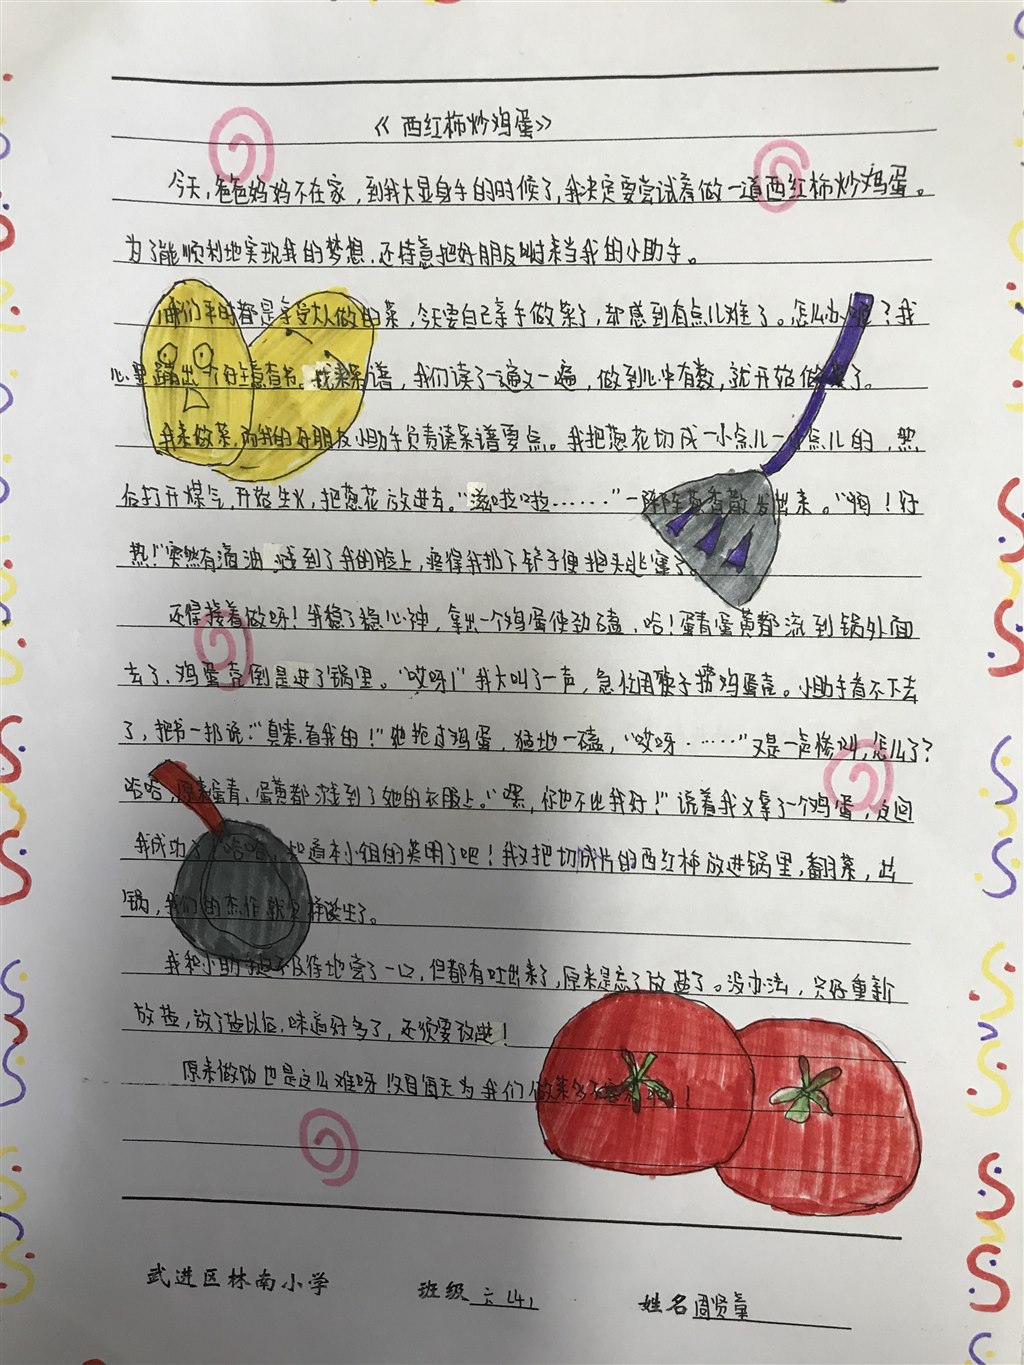 《西红柿炒鸡蛋》
今天，爸爸妈妈不在家，到我大显身手的时候了，我决定要尝试着做一道西红柿炒鸡蛋。
为了能顺利地实现我的梦想，还特意把好朋友叫来当我的小助手。
我们平时都是享受大人做的菜，今天要自己亲手做菜了，却感到有点儿难了。怎么办呢？我
心里蹦出一个好主意查书。找来菜谱，我们读了一遍又一遍，做到心中有数，就开始做菜了。
我来做菜，而我的好朋友小助手负责读菜谱要点。我把葱花切成一小点儿一小点儿的，然
后打开煤气，开始生火，把葱花放进去。“滋啦啦……”一阵阵葱香散发出来。“啊！好
热！”突然有滴油溅到了我的脸上，疼得我扔下铲子便抱头逃窜了。
还得接着做呀！我稳了稳心神，拿出一个鸡蛋使劲磕，哈！蛋青蛋黄都流到锅外面
去了，鸡蛋壳倒是进了锅里。“哎呀！”我大叫了一声，急忙用筷子捞鸡蛋壳。小助手看不下去
了，把书一扔说：“真笨，看我的！”她抢过鸡蛋，猛地一磕，“哎呀……”又是一声惨叫，怎么了？
哈哈，原来蛋青、蛋黄都溅到了她的衣服上。“嘿，你也不比我好！”说着我又拿了一个鸡蛋，这回
我成功了！哈哈，知道本小姐的英明了吧！我又把切成片的西红柿放进锅里，翻菜，出
锅，我们的杰作就这样诞生了。
我和小助手迫不及待地尝了一口，但都有吐出来了，原来是忘了放盐了。没办法，只好重新
放盐，放了盐以后，味道好多了，还须要改进！
原来做饭也是这么难呀！父母每天为我们做菜多不容易啊！
武进区林南小学 班级 六（4） 姓名 周贤章